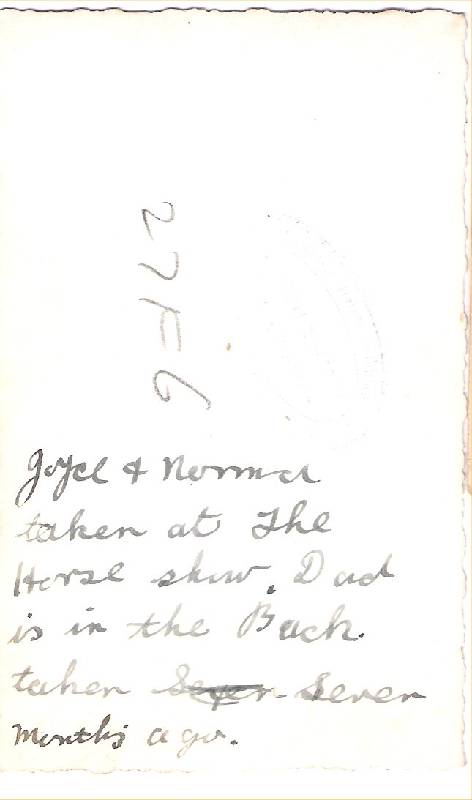 27F6
Joyce & Norma
taken at The
Horse show. Dad
is in the Back.
taken Seven Seven
Months ago.